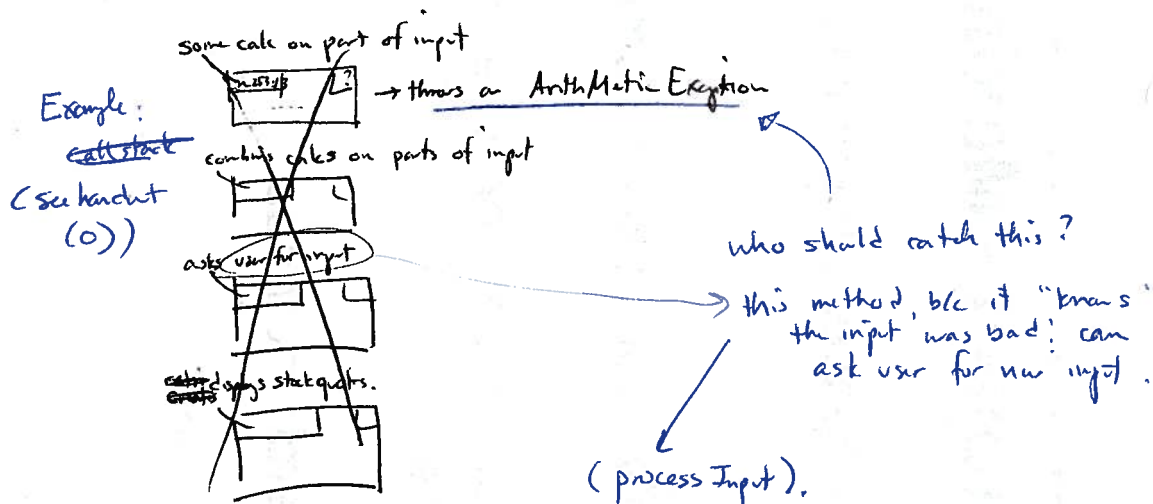 some calc on part of input
?
→ throws an ArithMetic Exception
Example:
call stack
(see handout
(0))
combines calcs on parts of input
asks user for input
who should catch this?
this method, b/c it "knows"
the input was bad! can
ask user for new input.
displays stack quotes.
(process Input).